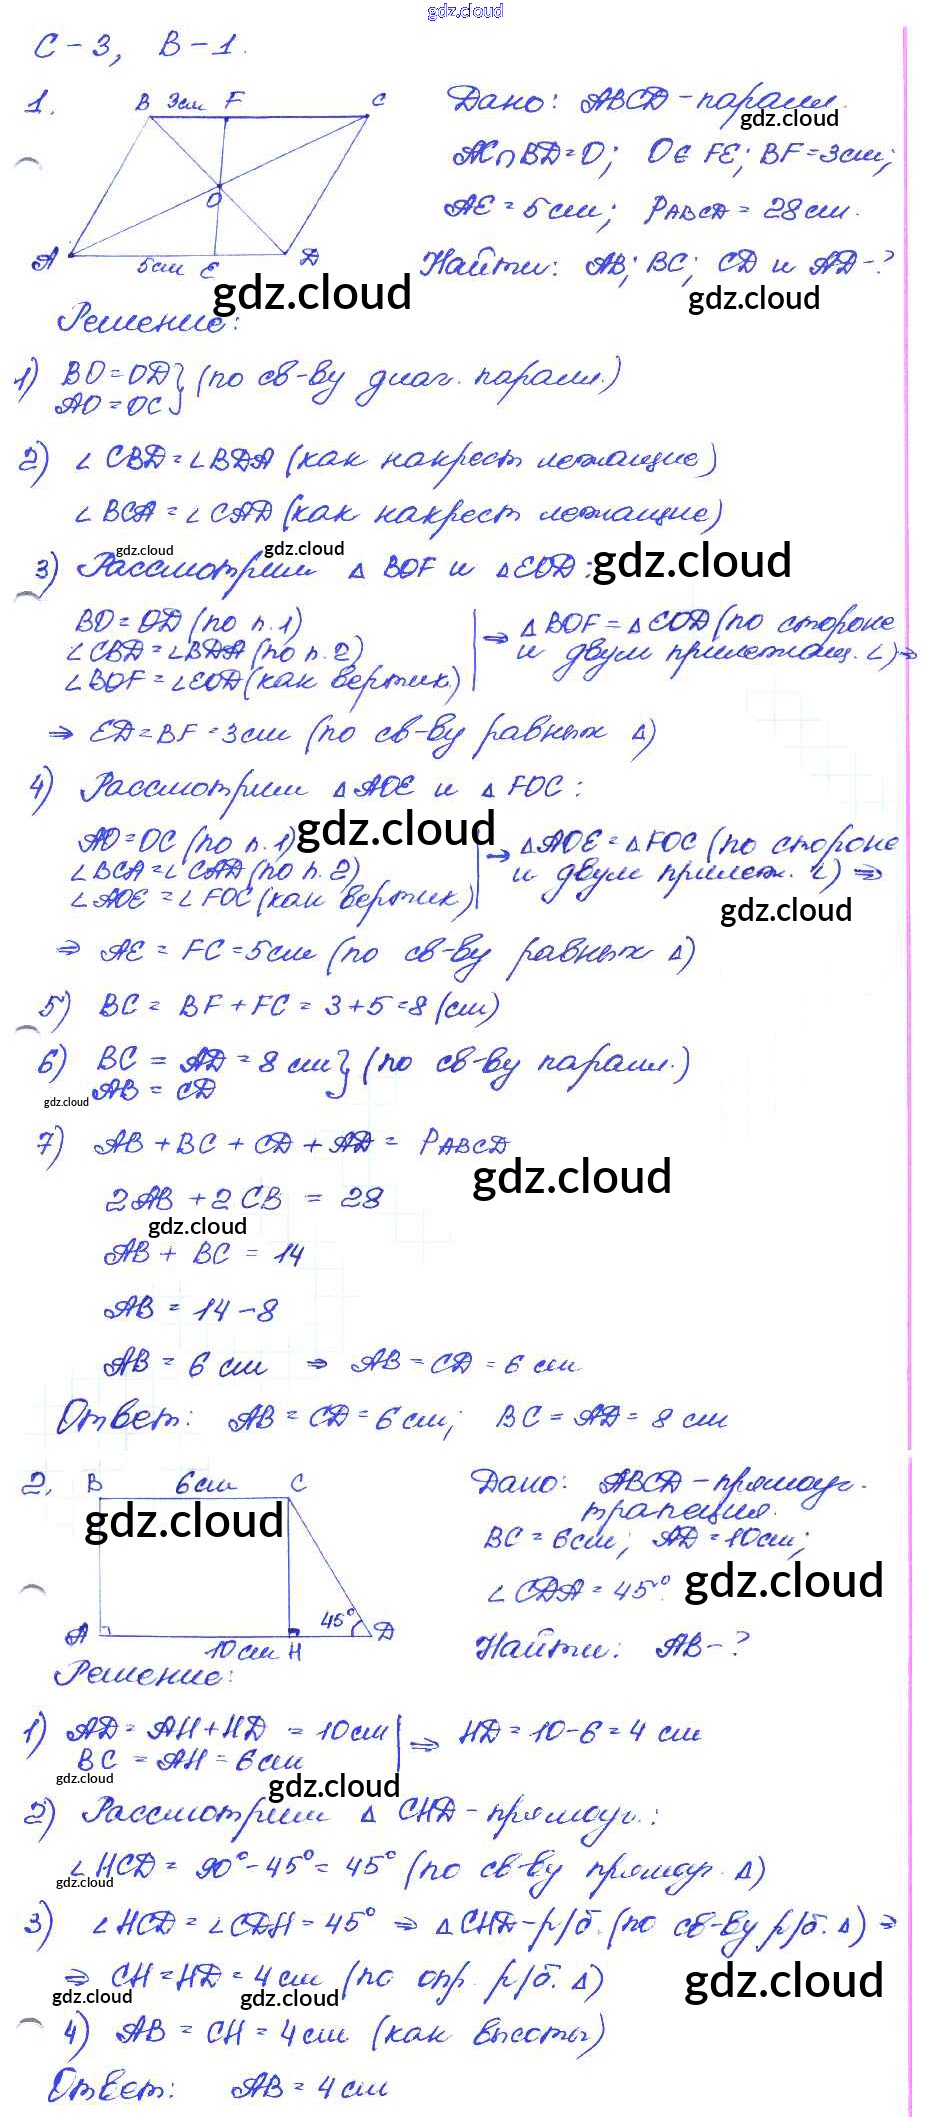 gdz.cloud
С-3, В-1.
1. B 3см F C
A 5см E D O
Дано: ABCD-паралл.
gdz.cloud
AC∩BD=O; O∈FE; BF=3см;
AE=5см; PABCD=28см.
Найти: AB; BC; CD и AD-?
gdz.cloud
gdz.cloud
Решение:
1) BO=OD} (по св-ву диаг. паралл.)
AO=OC
2) ∠CBD=∠BDA (как накрест лежащие)
∠BCA=∠CAD (как накрест лежащие)
gdz.cloud
gdz.cloud
gdz.cloud
3) Рассмотрим △BOF и △EOD:
BO=OD (по п.1)
∠CBD=∠BDA (по п.2)
∠BOF=∠EOD (как вертик.)
⇒ △BOF=△EOD (по стороне
и двум прилежащ. ∠) ⇒
⇒ ED=BF=3см (по св-ву равных △)
4) Рассмотрим △AOE и △FOC:
gdz.cloud
AO=OC (по п.1)
∠BCA=∠CAD (по п.2)
∠AOE=∠FOC (как вертик)
→ △AOE=△FOC (по стороне
и двум прилеж. ∠) ⇒
gdz.cloud
⇒ AE=FC=5см (по св-ву равных △)
5) BC=BF+FC=3+5=8 (см)
6) BC=AD=8 см} (по св-ву паралл.)
AB=CD
gdz.cloud
7) AB+BC+CD+AD=PABCD
gdz.cloud
2AB+2CB=28
gdz.cloud
AB+BC=14
AB=14-8
AB=6 см ⇒ AB=CD=6 см
Ответ: AB=CD=6см; BC=AD=8 см
2. B 6см C
gdz.cloud
A 10см H 45° D
Дано: ABCD-прямоуг.
трапеция.
BC=6см; AD=10см;
∠CDA=45°.
gdz.cloud
Найти: AB-?
Решение:
1) AD=AH+HD=10см
BC=AH=6см
⇒ HD=10-6=4 см
gdz.cloud
gdz.cloud
2) Рассмотрим △CHD-прямоуг.:
∠HCD=90°-45°=45° (по св-ву прямоуг. △)
gdz.cloud
3) ∠HCD=∠CDH=45° ⇒ △CHD-р/б. (по св-ву р/б. △) ⇒
⇒ CH=HD=4см (по опр. р/б. △)
gdz.cloud
gdz.cloud
gdz.cloud
4) AB=CH=4см (как высоты)
Ответ: AB=4см